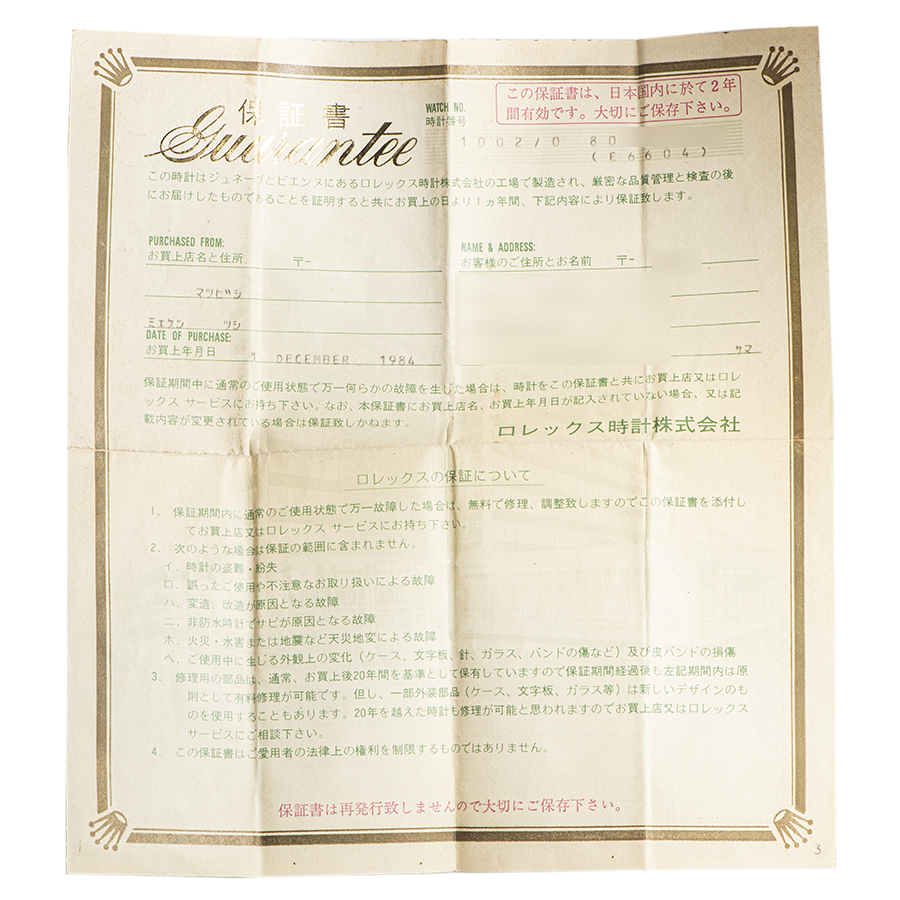 保証書
Guarantee
WATCH NO.
時計番号
この保証書は、日本国内に於て2年
間有効です。大切にご保存下さい。
1002/0 80
(E6604)
この時計はジュネーブとビエンヌにあるロレックス時計株式会社の工場で製造され、厳密な品質管理と検査の後
にお届けしたものであることを証明すると共にお買上の日より1ヵ年間、下記内容により保証致します。
PURCHASED FROM:
お買上店名と住所 〒-
マツビシ
ミエケン ツシ
NAME & ADDRESS:
お客様のご住所とお名前 〒-
サマ
DATE OF PURCHASE:
お買上年月日 DECEMBER 1984
保証期間中に通常のご使用状態で万一何らかの故障を生じた場合は、時計をこの保証書と共にお買上店又はロレ
ックス サービスにお持ち下さい。なお、本保証書にお買上店名、お買上年月日が記入されていない場合、又は記
載内容が変更されている場合は保証致しかねます。
ロレックス時計株式会社
ロレックスの保証について
1. 保証期間内に通常のご使用状態で万一故障した場合は、無料で修理、調整致しますのでこの保証書を添付し
てお買上店又はロレックス サービスにお持ち下さい。
2. 次のような場合は保証の範囲に含まれません。
イ. 時計の盗難・紛失
ロ. 誤ったご使用や不注意なお取り扱いによる故障
ハ. 変造、改造が原因となる故障
ニ. 非防水時計でサビが原因となる故障
ホ. 火災・水害または地震など天災地変による故障
ヘ. ご使用中に生じる外観上の変化(ケース、文字板、針、ガラス、バンドの傷など)及び皮バンドの損傷
3. 修理用の部品は、通常、お買上後20年間を基準として保有していますので保証期間経過後も左記期間内は原
則として有料修理が可能です。但し、一部外装部品(ケース、文字板、ガラス等)は新しいデザインのも
のを使用することもあります。20年を越えた時計も修理が可能と思われますのでお買上店又はロレックス
サービスにご相談下さい。
4. この保証書はご愛用者の法律上の権利を制限するものではありません。
保証書は再発行致しませんので大切にご保存下さい。
3